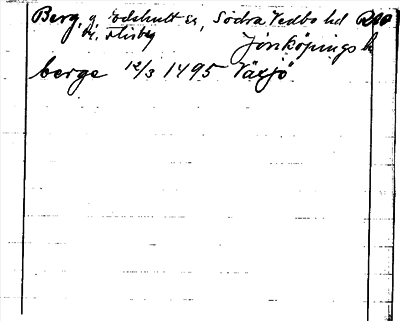 Berg, g. Edshult sn, Södra Vedbo hd
kr. Flisby
Jönköpings l.
berge 12/3 1495 Växjö